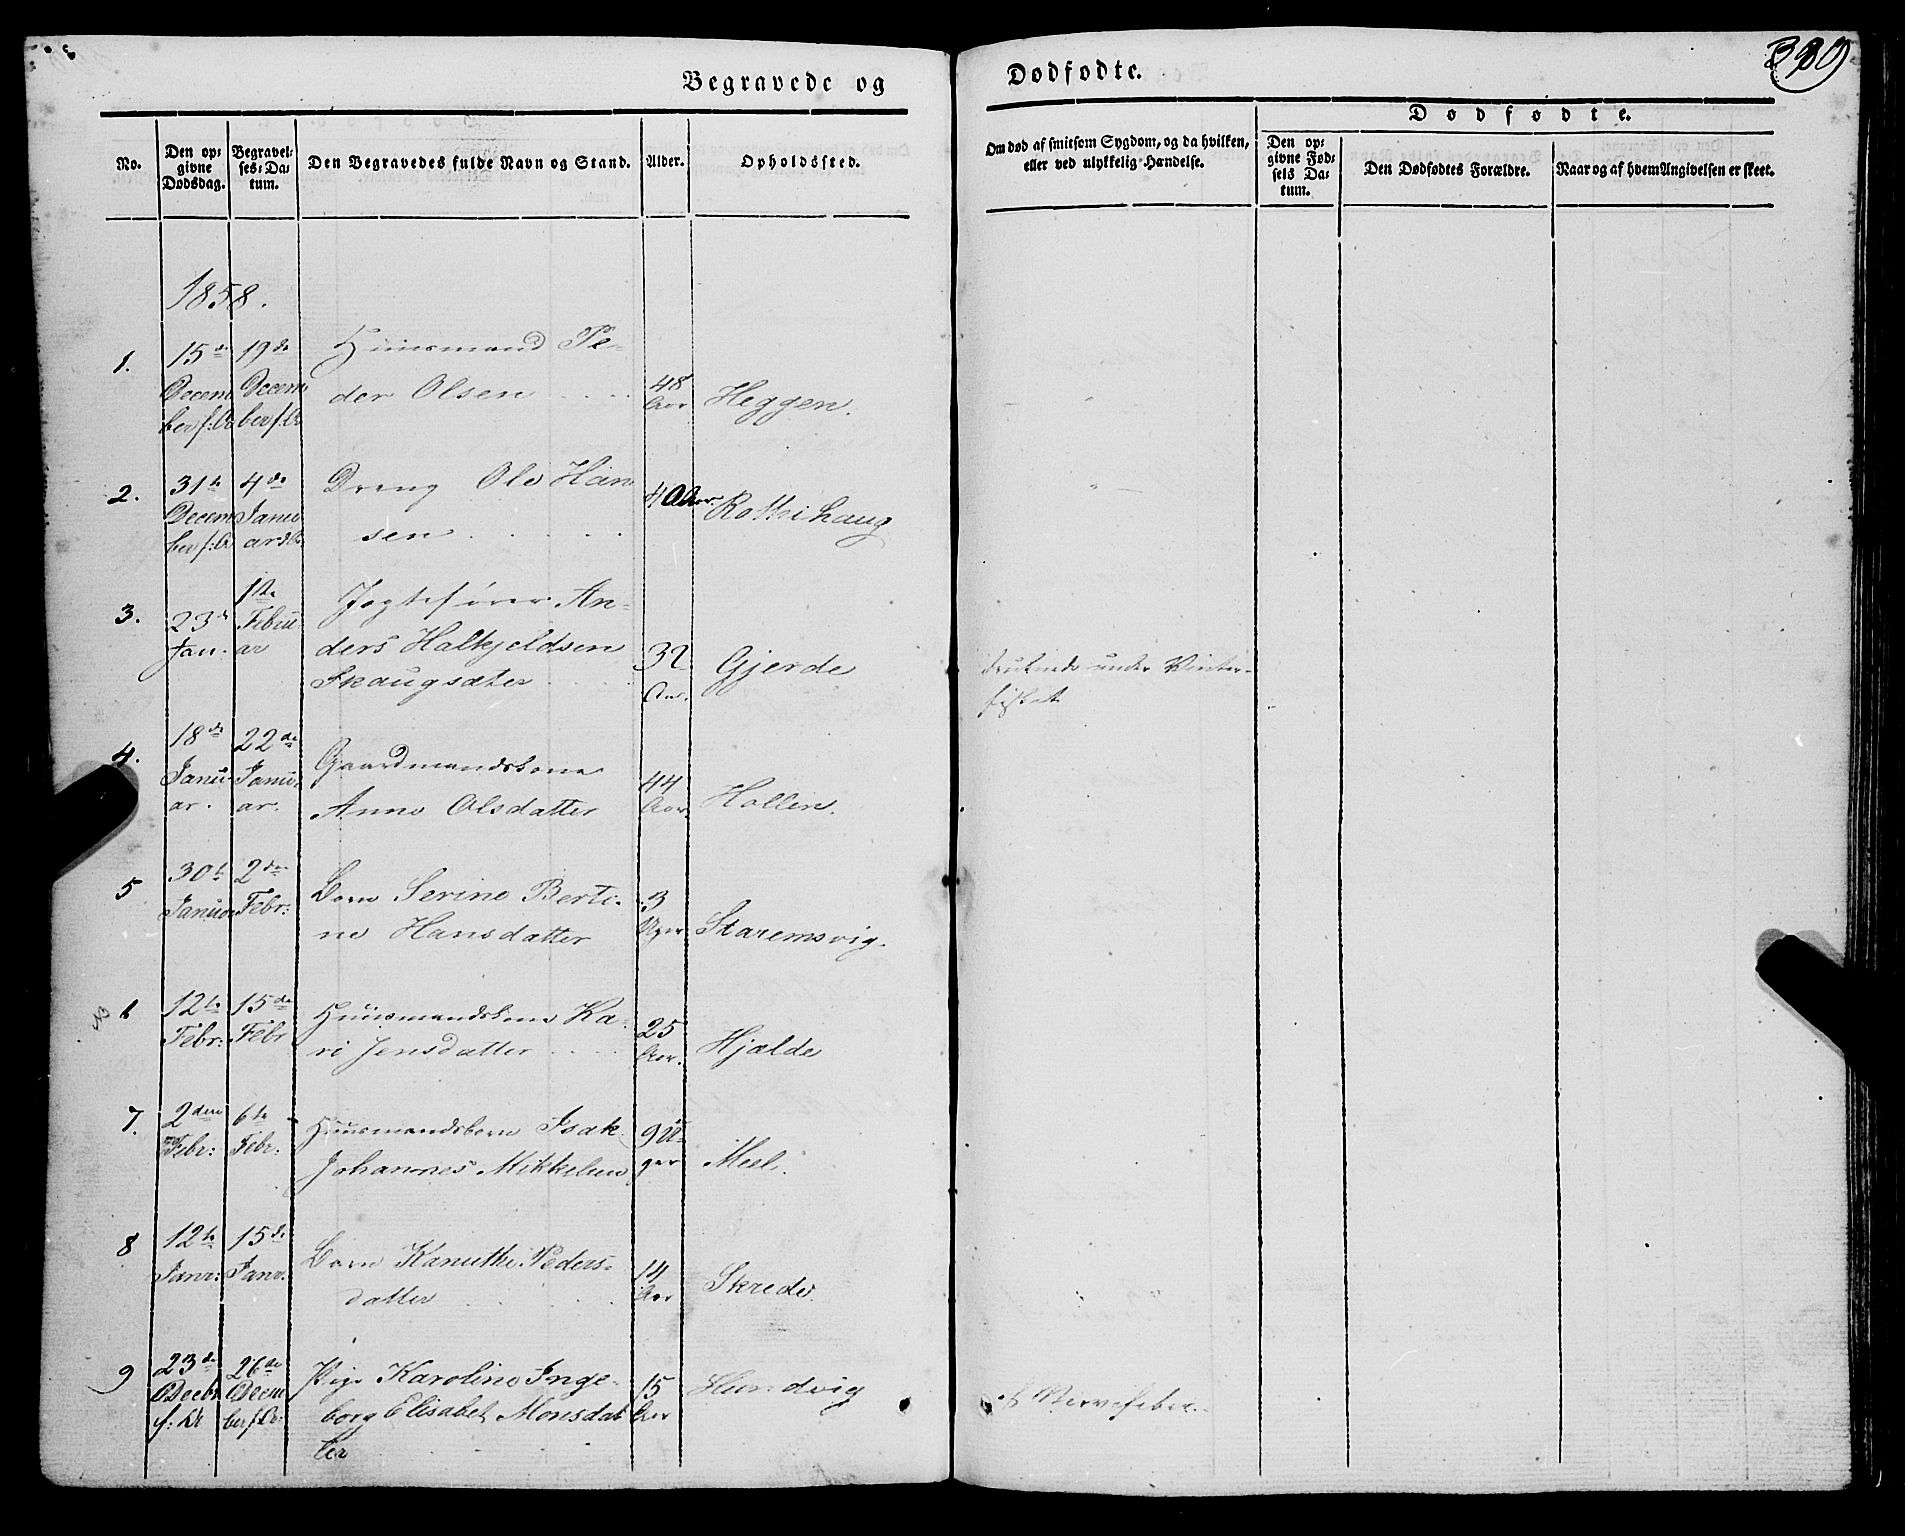 390
Begravede og
Dødfødte.
No.
Den op-
givne
Dødsdag.
Begravel-
ses-Da-
tum.
Den Begravedes fulde Navn og Stand.
Alder.
Opholdssted.
Om død af smitsom Sygdom, og da hvilken,
eller ved ulykkelig Hændelse.
Dødfødte.
Den op-
givne Fød-
sels Da-
tum.
Den Dødfødtes Forældre.
Naar og af hvem Angivelsen er skeet.
1858.
1.
15de
Decem
ber f: A
19de
Decem
ber f. A
Huusmand Pe-
der Olsen
48
Aar
Heggen.
2.
31te
Decem
ber f: A
4de
Janu
ar
Dreng Ole Han
sen
40 Aar
Rottihaug
3.
23de
Jan.
1ste
Febru
ar
Jagtefører An-
ders Halkjeldsen
Skaugsæter
32
Aar.
Gjerde
druknede under Vinter-
fisket
4.
18de
Janu-
ar.
22de
Janu-
ar.
Gaardmandskone
Anne Olsdatter
44
Aar.
Hollen.
5
30te
Januar
2den
Febr:
Barn Serine Berti-
ne Hansdatter
3
Uger
Staremsvig.
6
12te
Febr:
15de
Febr
Huusmandskone Ka-
ri Jensdatter
25
Aar.
Hjælde
7.
2den
Febr:
6te
Febr:
Huusmandsbarn Isak
Johannes Mikkelsen
9 U-
ger
Meel.
8
12te
Janr:
15de
Janr.
Barn Kanuthe Peders-
datter
14
Aar
Skrede.
9
23de
Decbr
f: Ar
26de
Decem
ber f. Ar:
Pige Karoline Inge-
borg Elisabet Monsdat
ter
15
Aar
Hundvig
af Nervefeber.